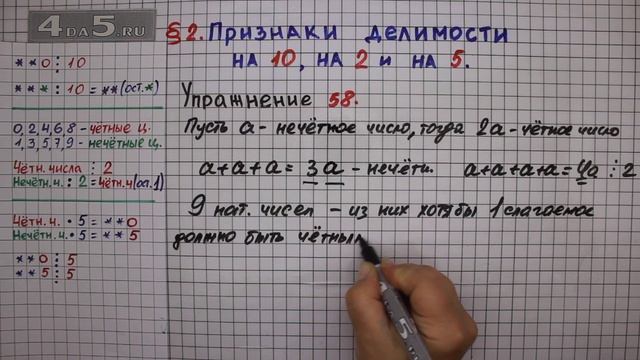 4DA5.RU
§2. Признаки делимости
на 10, на 2 и на 5.
**0 ⋮ 10
*** : 10 = **(ост.*)
0, 2, 4, 6, 8 - чётные ц.
1, 3, 5, 7, 9 - нечётные ц.
Чётн. числа ⋮ 2
Нечётн. ч. : 2 = чётн. ч(ост. 1)
Чётн. ч. • 5 = **0
Нечётн. ч. • 5 = **5
**0 ⋮ 5
**5 ⋮ 5
Упражнение 58.
Пусть а - нечётное число, тогда 2а - чётное число
а+а+а = 3а - нечётн. а+а+а+а = 4а ⋮ 2
9 нат. чисел - из них хотя бы 1 слагаемое
должно быть чётным